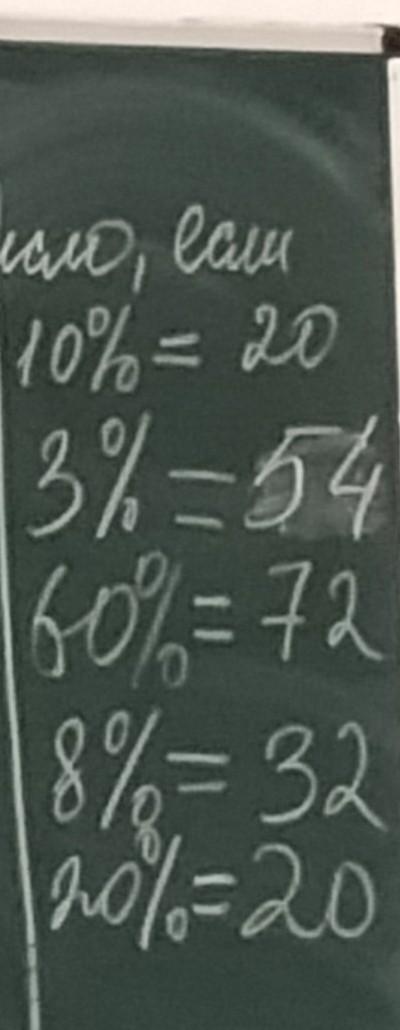 исло, если
10% = 20
3% = 54
60% = 72
8% = 32
20% = 20